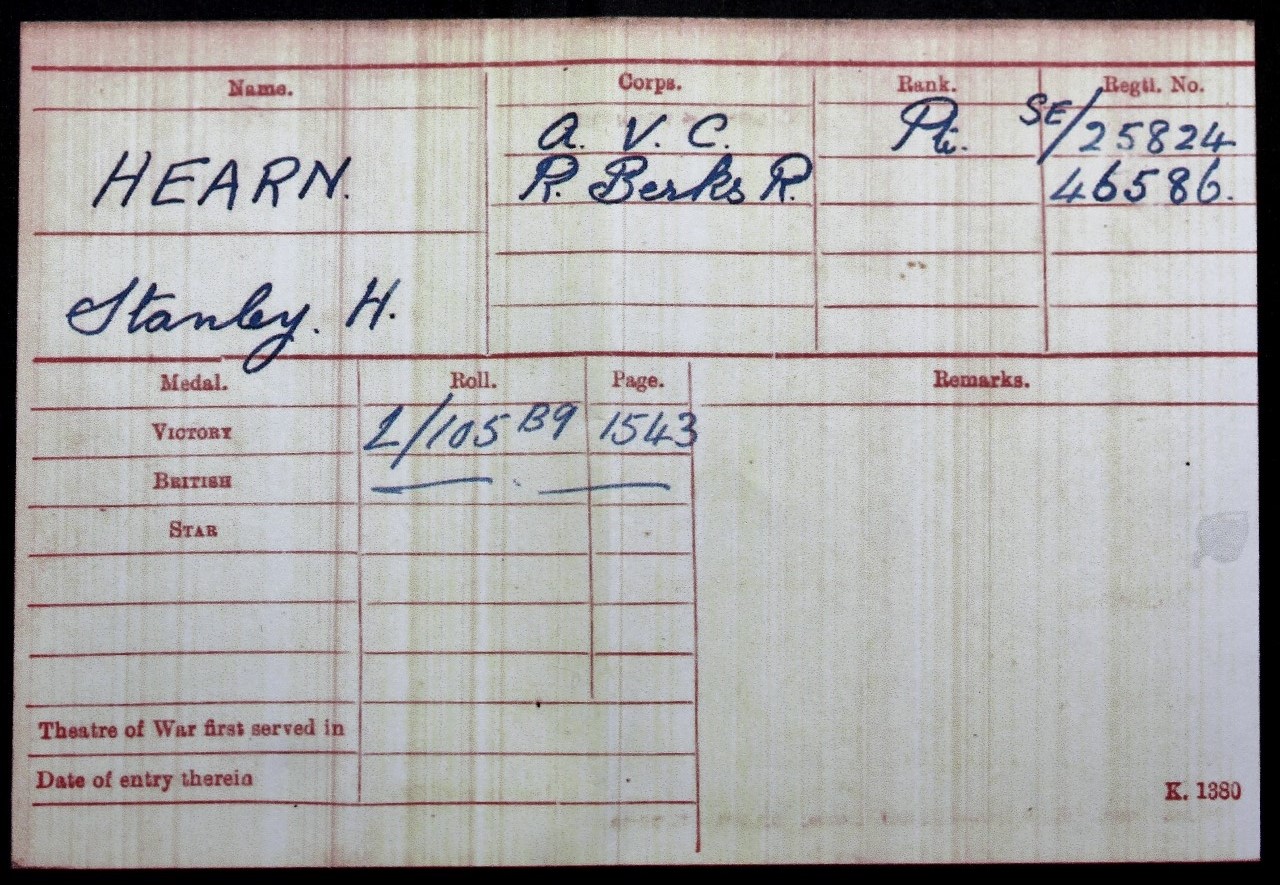 Name. Corps. Rank. Regtl. No.
HEARN. A. V. C. Pte. SE/25824
R. Berks R. 46586.
Stanley. H.
Medal. Roll. Page. Remarks.
VICTORY L/105 B9 1543
BRITISH
STAR
Theatre of War first served in
Date of entry therein
K. 1380